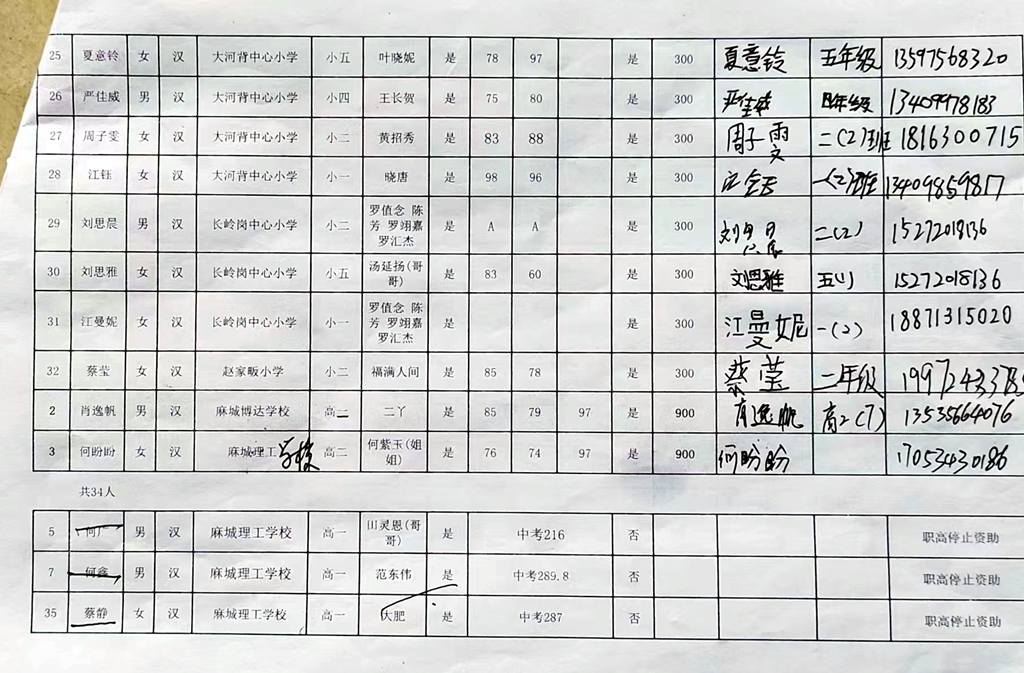 25 夏意铃 女 汉 大河背中心小学 小五 叶晓妮 是 78 97 是 300 夏意铃 五年级 13597568320
26 严佳威 男 汉 大河背中心小学 小四 王长贺 是 75 80 是 300 严佳威 四年级 13409978183
27 周子雯 女 汉 大河背中心小学 小二 黄招秀 是 83 88 是 300 周子雯 二(2)班 1816300715
28 江钰 女 汉 大河背中心小学 小一 晓唐 是 98 96 是 300 一(2)班 13409859817
29 刘思晨 男 汉 长岭岗中心小学 小二 罗值念 陈芳 罗翊嘉 罗汇杰 是 A A 是 300 刘思晨 二(2) 15272018136
30 刘思雅 女 汉 长岭岗中心小学 小五 汤延扬(哥哥) 是 83 60 是 300 刘思雅 五(1) 15272018136
31 江曼妮 女 汉 长岭岗中心小学 小一 罗值念 陈芳 罗翊嘉 罗汇杰 是 是 300 江曼妮 一(2) 18871315020
32 蔡莹 女 汉 赵家畈小学 小二 福满人间 是 85 78 是 300 蔡莹 二年级
2 肖逸帆 男 汉 麻城博达学校 高二 二丫 是 85 79 97 是 900 肖逸帆 高2(7) 13535664076
3 何盼盼 女 汉 麻城理工学校 高二 何紫玉(姐姐) 是 76 74 97 是 900 何盼盼 17053430186
共34人
5 何广 男 汉 麻城理工学校 高一 田灵恩(哥哥) 是 中考216 否 职高停止资助
7 何鑫 男 汉 麻城理工学校 高一 范东伟 是 中考289.8 否 职高停止资助
35 蔡静 女 汉 麻城理工学校 高一 大肥 是 中考287 否 职高停止资助